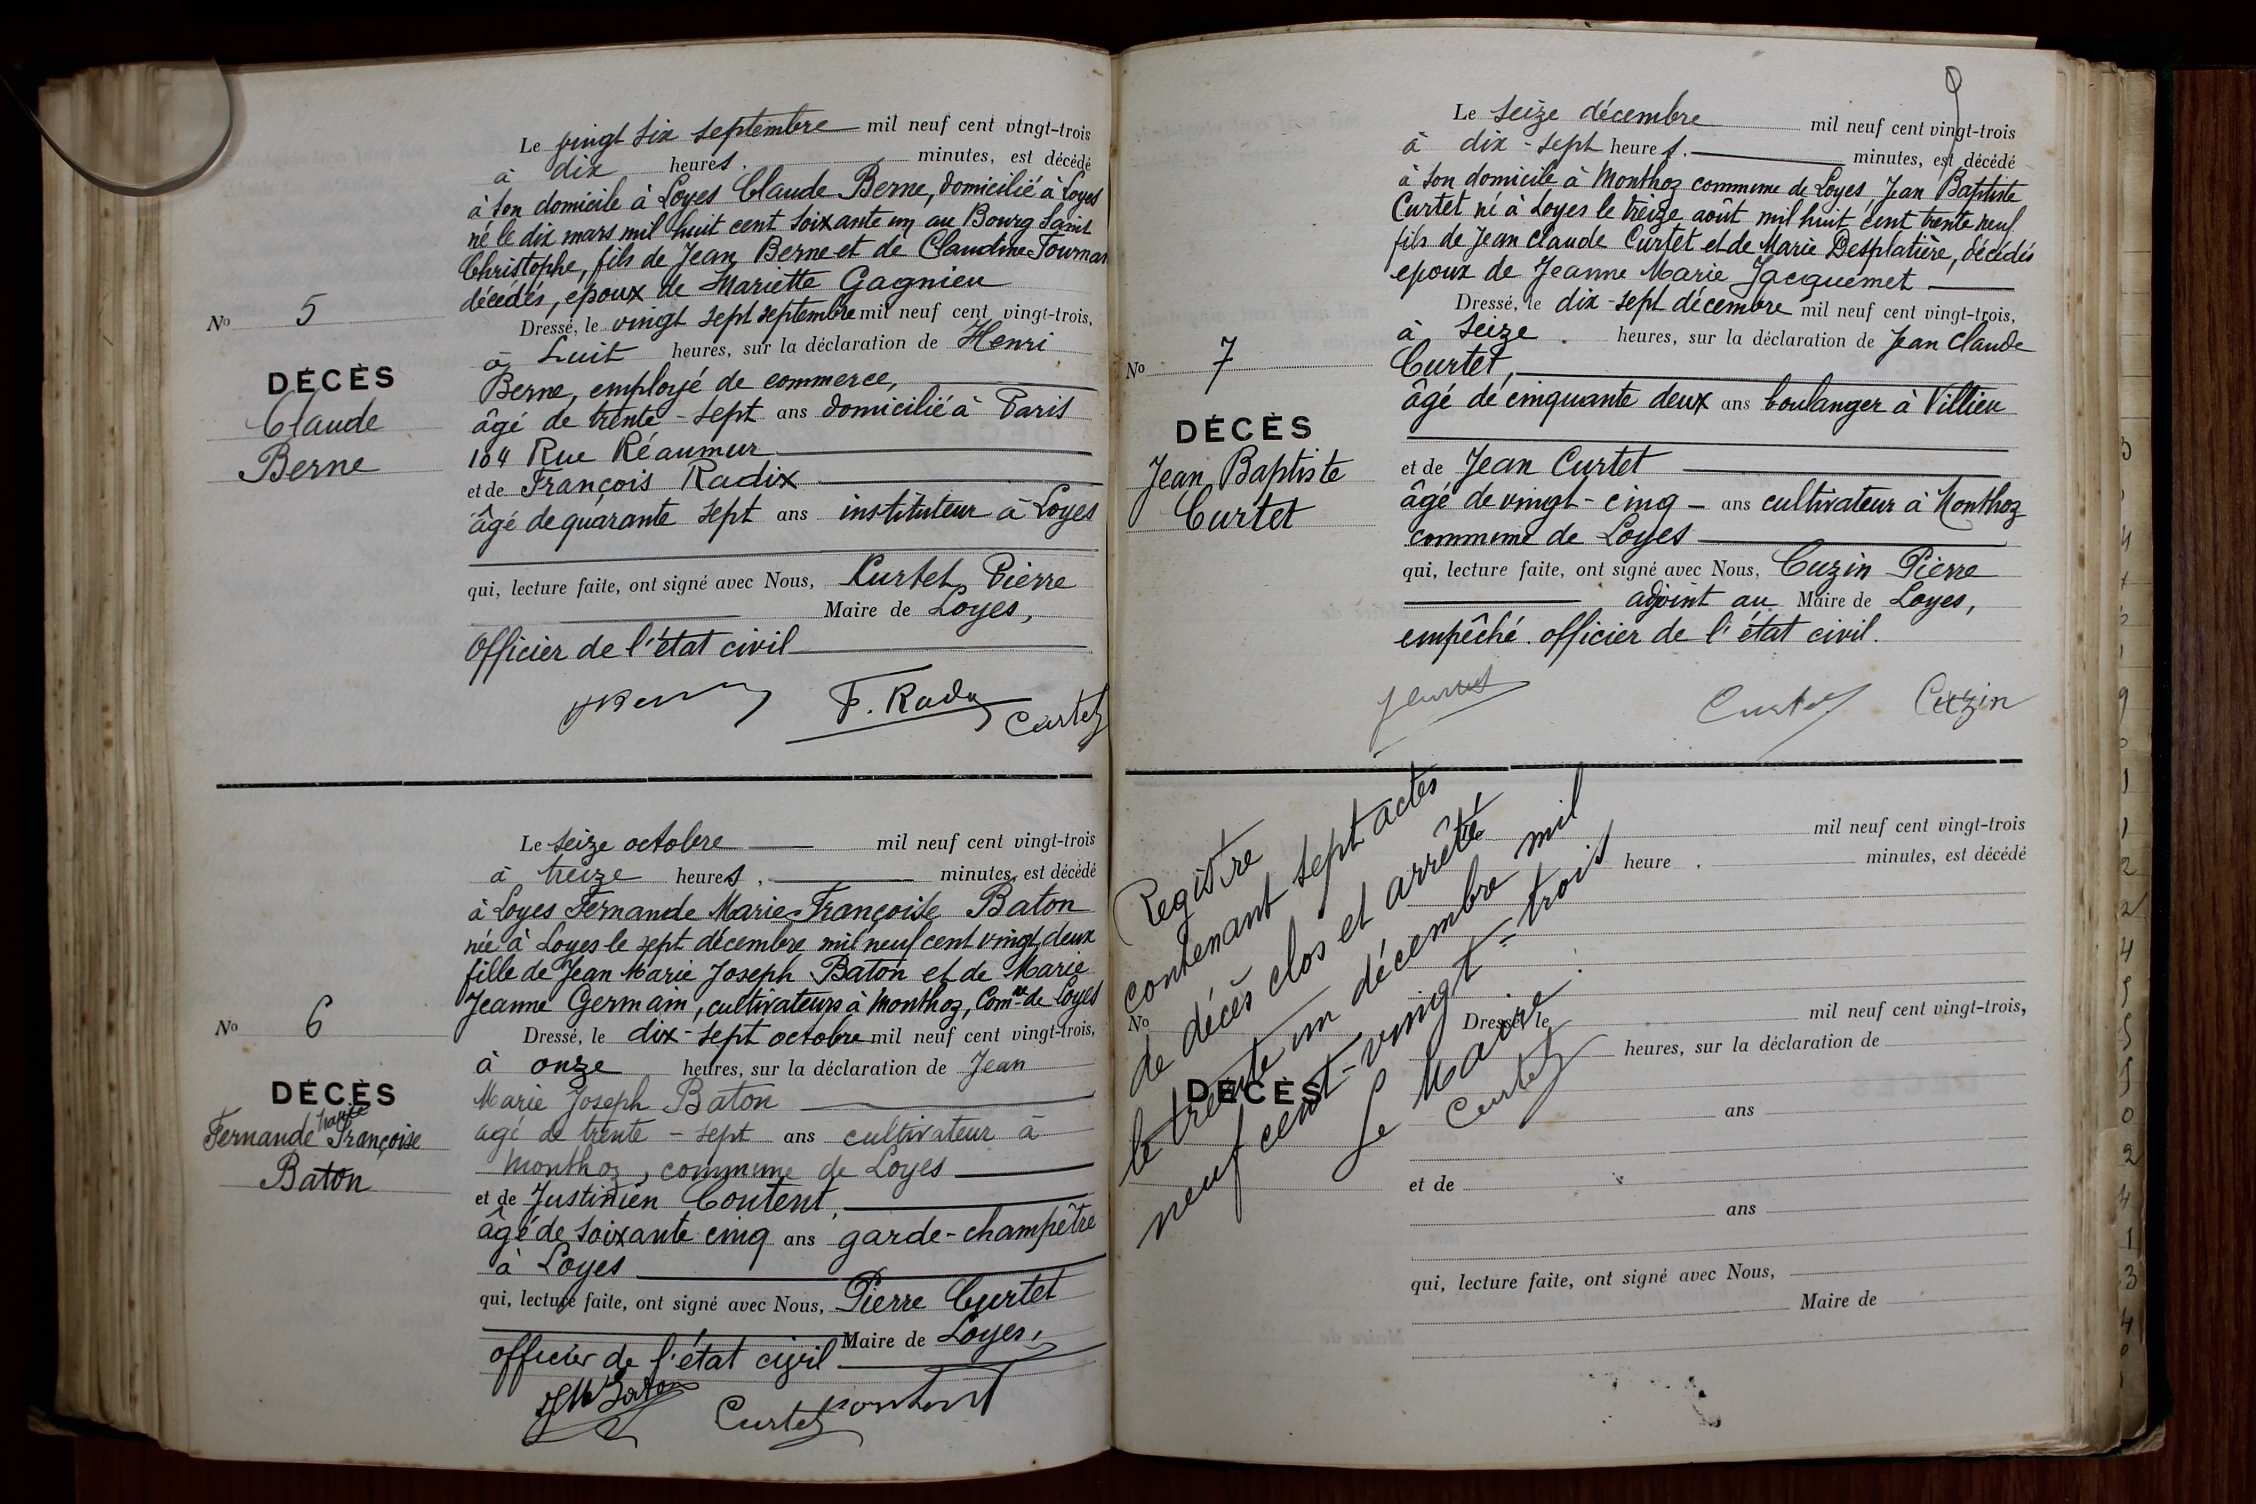 Le vingt six septembre mil neuf cent vingt-trois
à dix heures. minutes, est décédé
à son domicile à Loyes Claude Berne, domicilié à Loyes
né le dix mars mil huit cent soixante un au Bourg Saint
Christophe, fils de Jean Berne et de Claudine
décédés, époux de Mariette Gagnieu
No 5
Dressé, le vingt sept septembre mil neuf cent vingt-trois,
à huit heures, sur la déclaration de Henri
DÉCÈS
Claude
Berne
Berne, employé de commerce,
âgé de trente-sept ans domicilié à Paris
104 Rue Réaumur
et de François Radix
âgé de quarante sept ans instituteur à Loyes
qui, lecture faite, ont signé avec Nous, Curtet Pierre
Maire de Loyes,
Officier de l'état civil
F. Radix
Curtet
Le seize octobre mil neuf cent vingt-trois
à treize heures, minutes, est décédé
à Loyes Fernande Marie-Françoise Baton
née à Loyes le sept décembre mil neuf cent vingt deux
fille de Jean Marie Joseph Baton et de Marie
Jeanne Germain, cultivateurs à Monthoz, Comne de Loyes
No 6
Dressé, le dix-sept octobre mil neuf cent vingt-trois,
à onze heures, sur la déclaration de Jean
DÉCÈS
Marie
Fernande Françoise
Baton
Marie Joseph Baton
agé de trente-sept ans cultivateur à
Monthoz, commune de Loyes
et de Justinien Coutent,
âgé de soixante cinq ans garde-champêtre
à Loyes
qui, lecture faite, ont signé avec Nous, Pierre Curtet
Maire de Loyes,
officier de l'état civil
JM Baton
Curtet
Le seize décembre mil neuf cent vingt-trois
à dix-sept heures. minutes, est décédé
à son domicile à Monthoz commune de Loyes, Jean Baptiste
Curtet né à Loyes le treize août mil huit cent trente neuf
fils de Jean Claude Curtet et de Marie Desplatière, décédés
epoux de Jeanne Marie Jacquemet
Dressé, le dix-sept décembre mil neuf cent vingt-trois,
à seize heures, sur la déclaration de Jean Claude
No 7
DÉCÈS
Jean Baptiste
Curtet
Curtet,
âgé de cinquante deux ans boulanger à Villieu
et de Jean Curtet
âgé de vingt-cinq - ans cultivateur à Monthoz
commune de Loyes
qui, lecture faite, ont signé avec Nous, Cuzin Pierre
adjoint au Maire de Loyes,
empêché. officier de l'état civil.
Curtet
Cuzin
Registre
contenant sept actes
de décès clos et arrêté
le trente un décembre mil
neuf cent-vingt=trois
Le Maire
Curtet
mil neuf cent vingt-trois
heure . minutes, est décédé
No
Dressé, le mil neuf cent vingt-trois,
heures, sur la déclaration de
DÉCÈS
ans
et de
ans
qui, lecture faite, ont signé avec Nous,
Maire de